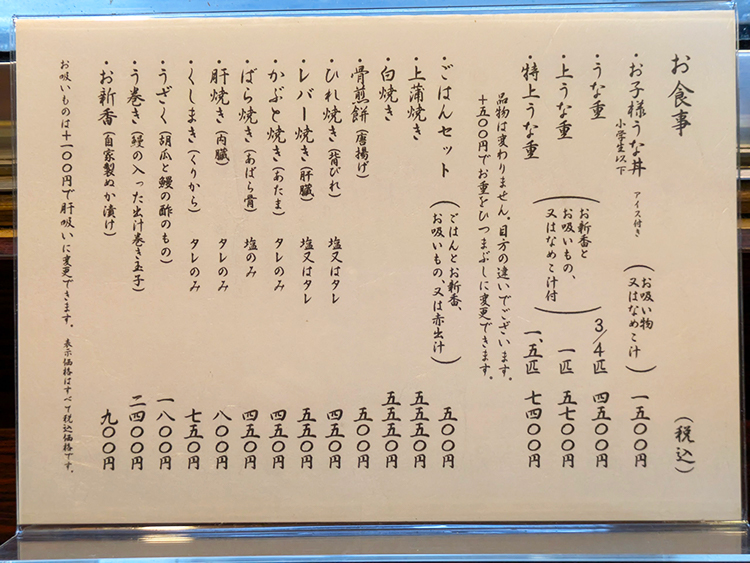 お食事 (税込)
・お子様うな丼 アイス付き (お吸い物又はなめこ汁) 一五〇〇円
小学生以下
・うな重 3/4匹 四五〇〇円
・上うな重 一匹 五七〇〇円
・特上うな重 一、五匹 七四〇〇円
(お新香とお吸いもの、又はなめこ汁付)
品物は変わりません。目方の違いでございます。
+五〇〇円でお重をひつまぶしに変更できます。
・ごはんセット (ごはんとお新香、お吸いもの、又は赤出汁) 五〇〇円
・上蒲焼き 五五五〇円
・白焼き 五五五〇円
・骨煎餅(唐揚げ) 五〇〇円
・ひれ焼き(背びれ) 塩又はタレ 四五〇円
・レバー焼き(肝臓) 塩又はタレ 五五〇円
・かぶと焼き(あたま) タレのみ 四五〇円
・ばら焼き(あばら骨) 塩のみ 四五〇円
・肝焼き(内臓) タレのみ 八〇〇円
・くしまき(くりから) タレのみ 七五〇円
・うざく(胡瓜と鰻の酢のもの) 一八〇〇円
・う巻き(鰻の入った出汁巻き玉子) 二四〇〇円
・お新香(自家製ぬか漬け) 九〇〇円
お吸いものは+一〇〇円で肝吸いに変更できます。 表示価格はすべて税込価格です。